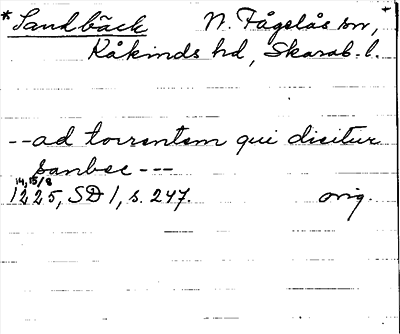 *Sandbäck N. Fågelås sn, +
Kåkinds hd, Skarab. l.
--ad torrentem qui dicitur
sanbec ---
14, 15/8
1225, SD 1, s. 247. orig.